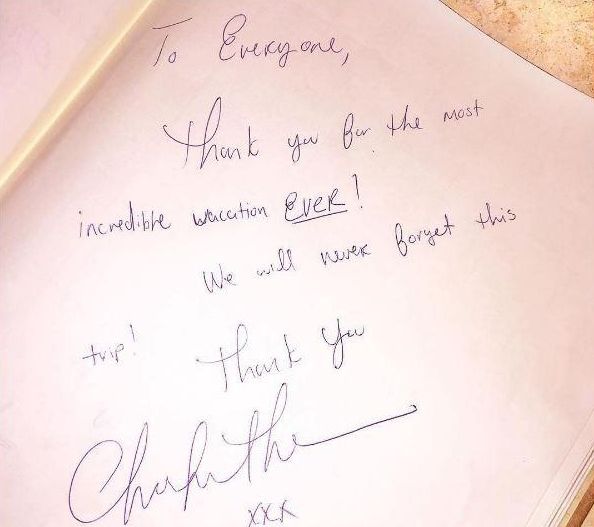 To Everyone,
Thank you for the most
incredible vacation EVER!
We will never forget this
trip!
Thank you
xxx